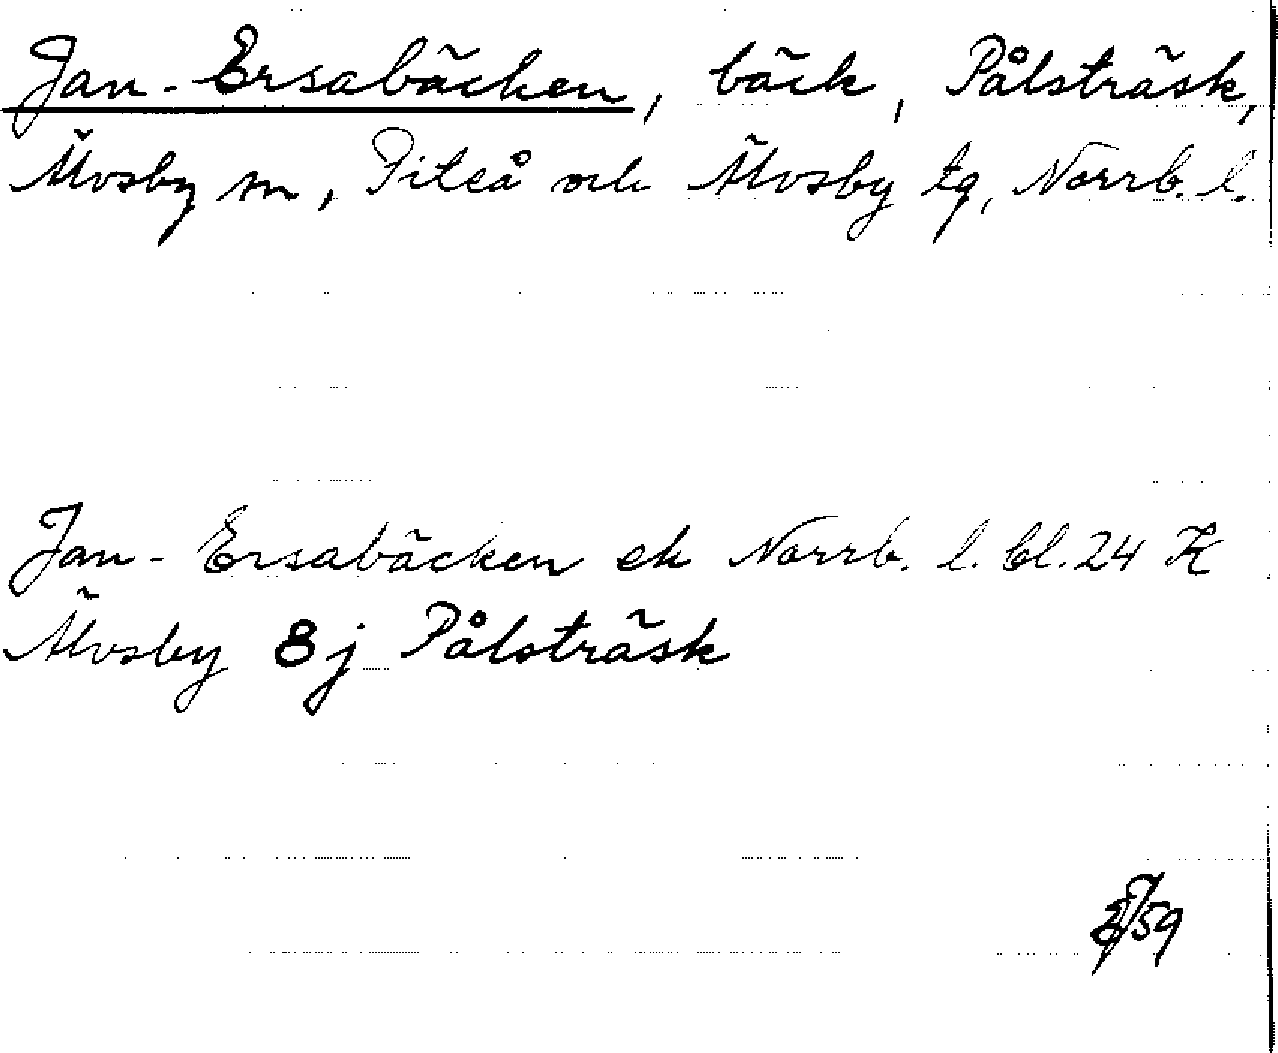 Jan-Ersabäcken, bäck, Pålsträsk,
Älvsby sn, Piteå och Älvsby tg, Norrb. l.
Jan-Ersabäcken ek Norrb. l. bl. 24 K
Älvsby 8j Pålsträsk
/59